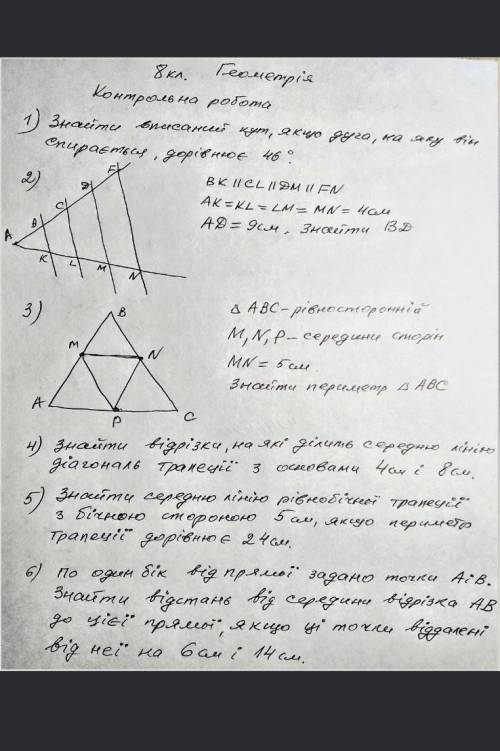 8кл. Геометрія
Контрольна робота
1) Знайти вписаний кут, якщо дуга, на яку він
спирається, дорівнює 46°.
2)
A B C D F
K L M N
BK || CL || DM || FN
AK = KL = LM = MN = 4см
AD = 9см. Знайти BD
3)
B
M N
A P C
△ ABC - рівносторонній
M, N, P - середини сторін
MN = 5см
Знайти периметр △ ABC
4) Знайти відрізки, на які ділить середню лінію
діагональ трапеції з основами 4см і 8см.
5) Знайти середню лінію рівнобічної трапеції
з бічною стороною 5см, якщо периметр
трапеції дорівнює 24см.
6) По один бік від прямої задано точки A і B.
Знайти відстань від середини відрізка AB
до цієї прямої, якщо ці точки віддалені
від неї на 6см і 14см.